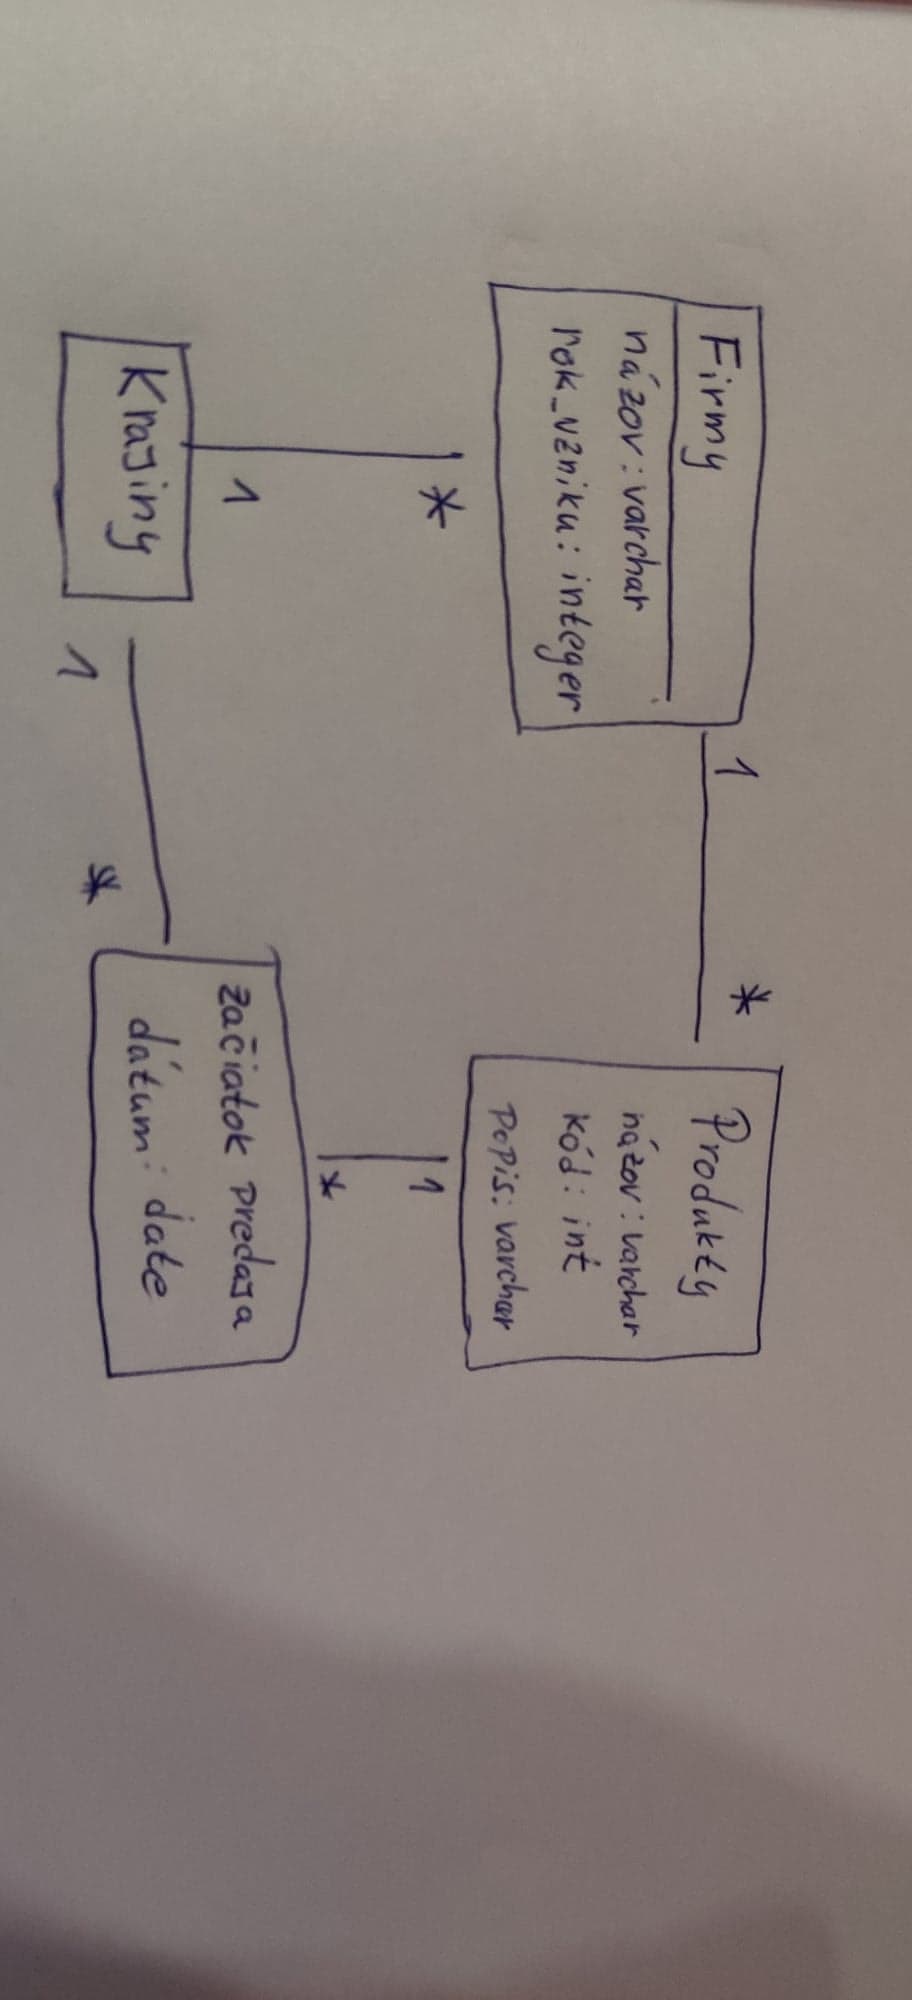 Firmy
názov: varchar
rok_vzniku: integer
1
*
Produkty
názov: varchar
kód: int
popis: varchar
*
1
1
*
Krajiny
1
*
začiatok predaja
dátum: date